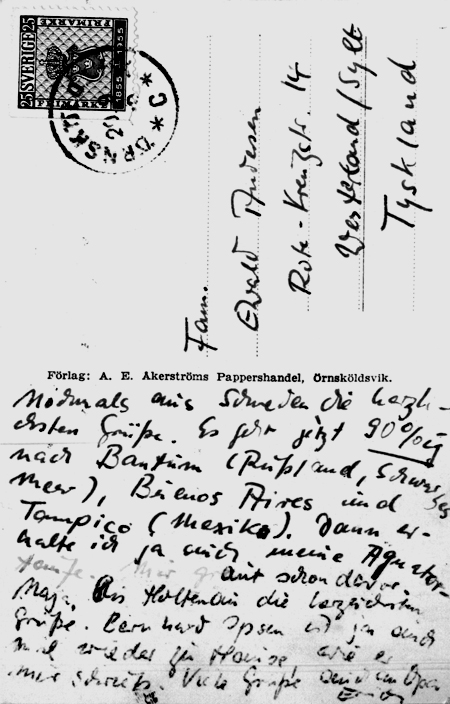 25 SVERIGE 25
FRIMÄRKE
1855 1955
FRIMÄRKE
ÖRNSKÖLDSVIK * C *
Fam.
Ewald Andresen
Rote-Kreuzstr. 14
Westerland/Sylt
Tyskland
Förlag: A. E. Akerströms Pappershandel, Örnsköldsvik.
Nochmals aus Schweden die herzli-
chsten Grüße. Es geht jetzt 90%ig
nach Bantum (Rußland, Schwarzes
Meer), Buenos Aires und
Tampico (Mexiko). Dann er-
halte ich ja auch meine Äquator-
taufe. Mir graut schon davor.
Naja. An die herzlichsten
Grüße. Bernhard Ipsen ist ja auch
mal wieder zu Hause wie er
mir schrieb. Viele Grüße